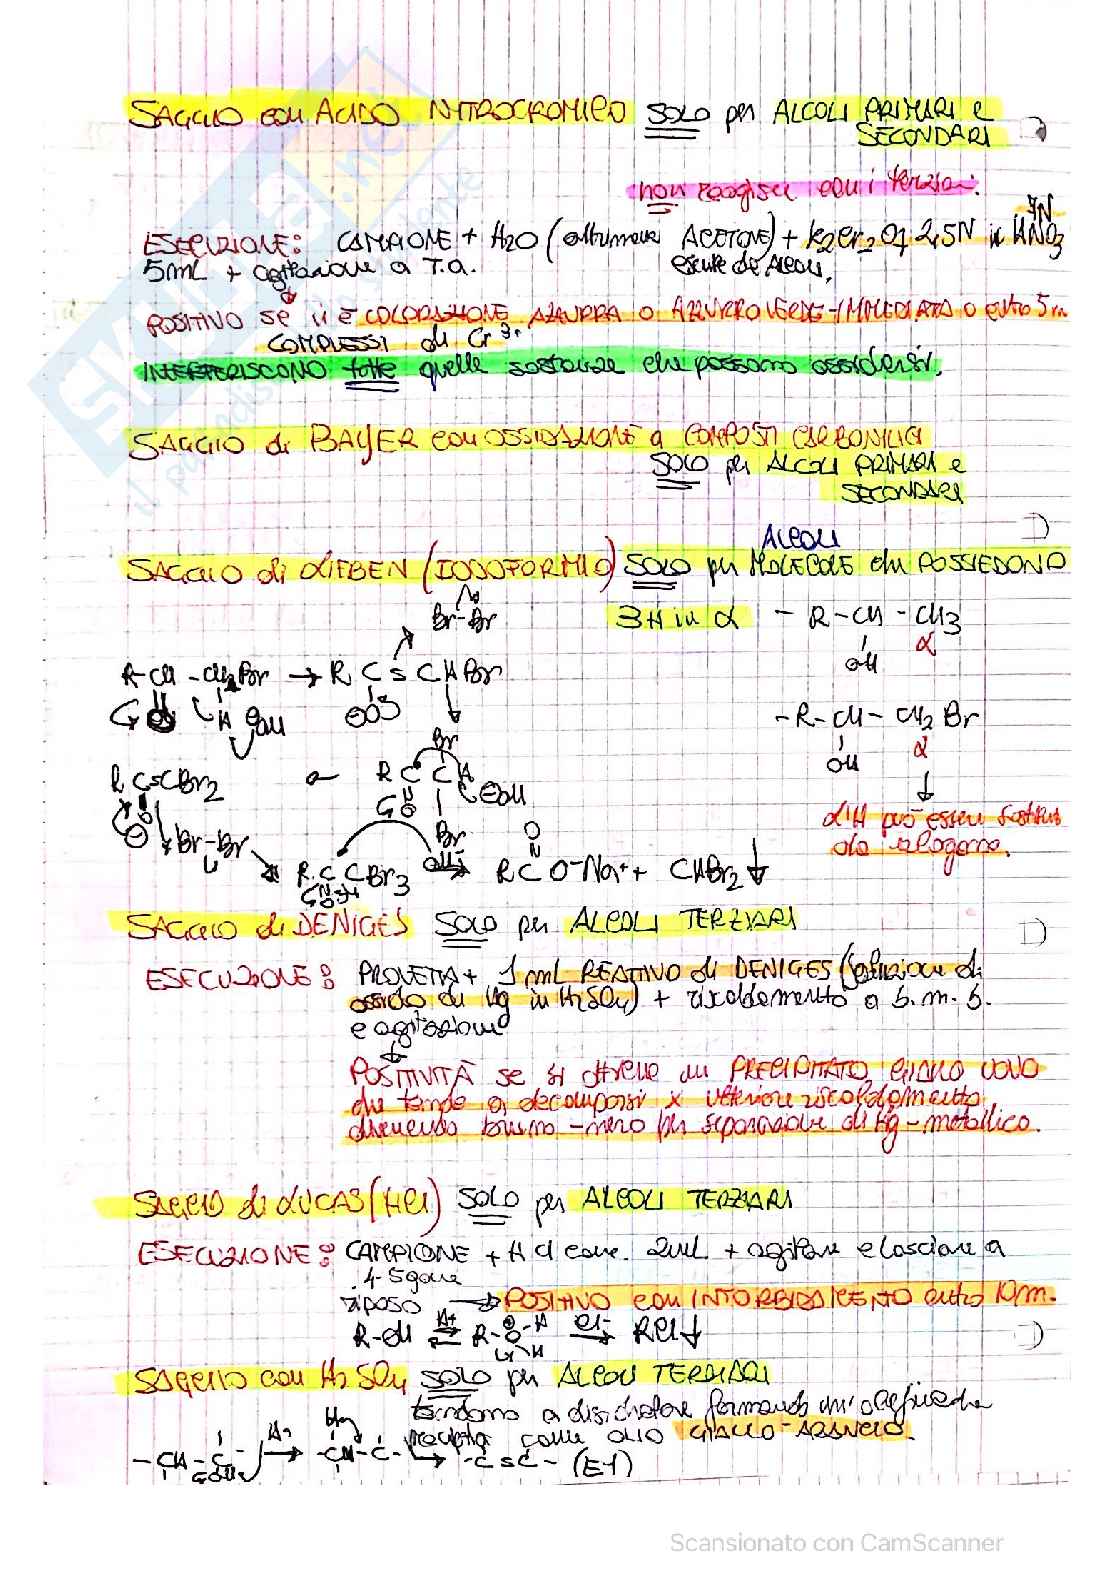 SAGGIO con ACIDO NITROCROMICO SOLO per ALCOLI PRIMARI e
SECONDARI
non reagisce con i terziari.
ESECUZIONE: CAMPIONE + H2O (altrimenti ACETONE) + K2Cr2O7 2,5N in HNO3 7N
5mL + agitazione a T.a. esente da Alcoli.
POSITIVO se vi è COLORAZIONE AZZURRA O AZZURRO VERDE - IMMEDIATA o entro 5m
COMPLESSI di Cr3+
INTERFERISCONO tutte quelle sostanze che possono ossidarsi.
SAGGIO di BAYER con OSSIDAZIONE a COMPOSTI CARBONILICI
SOLO per ALCOLI PRIMARI e
SECONDARI
Alcoli
SAGGIO di LIEBEN (IODOFORMIO) SOLO per MOLECOLE che POSSIEDONO
Br-Br
3H in α - R-CH-CH3
OH α
R-CH-CH2Br → R C = CHBr
-R-CH-CH2Br
OH α
R C=CBr2
L'H può essere sostituito
da alogeno.
Br-Br
R C CBr3 → R C O-Na+ + CHBr2 ↓
SAGGIO di DENIGES SOLO per ALCOLI TERZIARI
ESECUZIONE: PROVETTA + 1mL REATTIVO di DENIGES (soluzione di
ossido di Hg in H2SO4) + riscaldamento a b.m.b.
e agitazione
POSITIVITÀ se si ottiene un PRECIPITATO GIALLO UOVO
che tende a decomporsi x ulteriore riscaldamento
divenendo bruno-nero per separazione di Hg-metallico.
SAGGIO di LUCAS (HCl) SOLO per ALCOLI TERZIARI
ESECUZIONE: CAMPIONE + HCl conc. 2mL + agitare e lasciare a
4-5 gocce
riposo → POSITIVO con INTORBIDIMENTO entro 10m.
R-OH ⇌ R-O-H → RCl↓
SAGGIO con H2SO4 SOLO per ALCOLI TERZIARI
tendono a disidratare formando un'olefina che
precipita come olio GIALLO-ARANCIO.
-CH-C- → -CH-C- → -C=C- (E1)
Scansionato con CamScanner